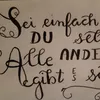 Sei einfach
DU sel
Alle ANDE
gibt es s